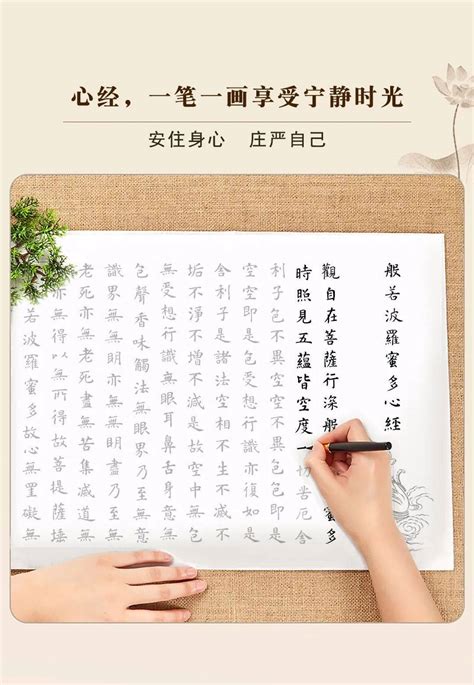 心经，一笔一画享受宁静时光
安住身心 庄严自己
般若波羅蜜多心經
觀自在菩薩行深般蜜多
時照見五蘊皆空度一切苦厄舍
利子色不異空空不異色色即是
空空即是色受想行識亦復如是
舍利子是諸法空相不生不滅不
垢不淨不增不減是故空中無色
無受想行識無眼耳鼻舌身意無
色聲香味觸法無眼界乃至無意
識界無無明亦無無明盡乃至無
老死亦無老死盡無苦集滅道無
亦無得以無所得故菩提薩埵
若波羅蜜多故心無罣礙無